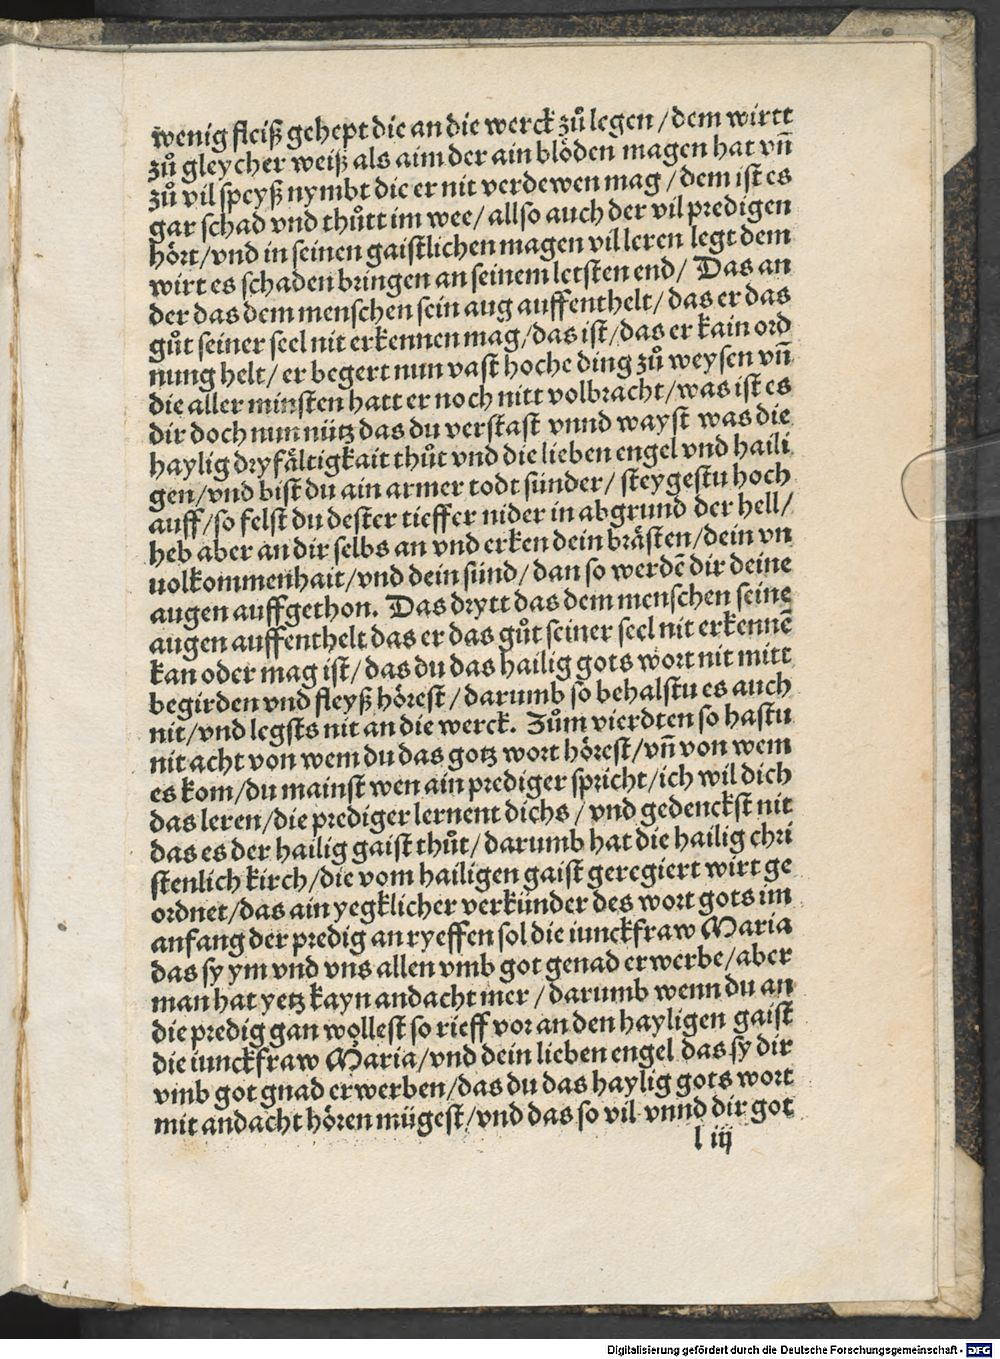 wenig fleiß gehept die an die werck zuͦ legen / dem wirtt
zuͦ gleycher weiß als aim der ain blöden magen hat vñ
zuͦ vil speyß nymbt die er nit verdewen mag / dem ist es
gar schad vnd thuͦtt im wee / allso auch der vil predigen
hört / vnd in seinen gaistlichen magen vil leren legt dem
wirt es schaden bringen an seinem letsten end / Das an
der das dem menschen sein aug auffenthelt / das er das
guͦt seiner seel nit erkennen mag / das ist / das er kain ord
nung helt / er begert nun vast hoche ding zuͦ weysen vñ
die aller minsten hatt er noch nitt volbracht / was ist es
dir doch nun nütz das du verstast vnnd wayst was die
haylig dryfältigkait thuͦt vnd die lieben engel vnd haili
gen / vnd bist du ain armer todt sünder / steygestu hoch
auff / so felst du dester tieffer nider in abgrund der hell /
heb aber an dir selbs an vnd erken dein brästen / dein vn
uolkommenhait / vnd dein sünd / dan so werdē dir deine
augen auffgethon. Das drytt das dem menschen seine
augen auffenthelt das er das guͦt seiner seel nit erkennē
kan oder mag ist / das du das hailig gots wort nit mitt
begirden vnd fleyß hörest / darumb so behalstu es auch
nit / vnd legsts nit an die werck. Zuͦm vierdten so hastu
nit acht von wem du das gotz wort hörest / vñ von wem
es kom / du mainst wen ain prediger spricht / ich wil dich
das leren / die prediger lernent dichs / vnd gedenckst nit
das es der hailig gaist thuͦt / darumb hat die hailig chri
stenlich kirch / die vom hailigen gaist geregiert wirt ge
ordnet / das ain yegklicher verkünder des wort gots im
anfang der predig an ryeffen sol die iunckfraw Maria
das sy ym vnd vns allen vmb got genad erwerbe / aber
man hat yetz kayn andacht mer / darumb wenn du an
die predig gan wöllest so rieff vor an den hayligen gaist
die iunckfraw Maria / vnd dein lieben engel das sy dir
vmb got gnad erwerben / das du das haylig gots wort
mit andacht hören mügest / vnd das so vil vnnd dir got
l iij
Digitalisierung gefördert durch die Deutsche Forschungsgemeinschaft - DFG